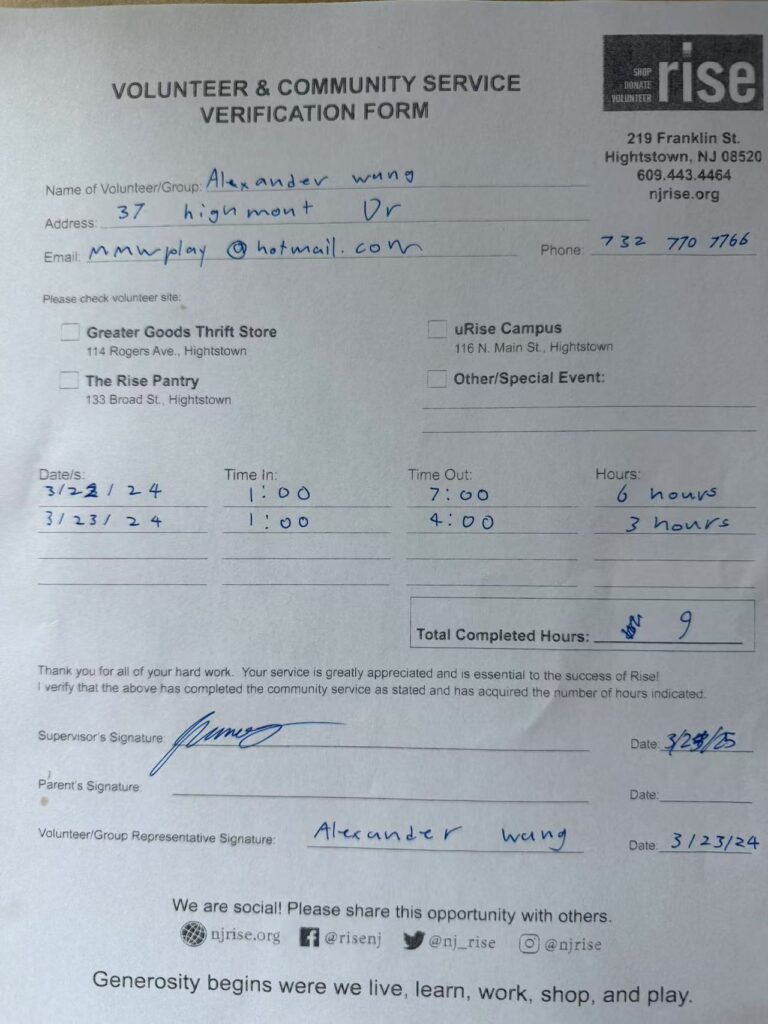 SHOP
DONATE
VOLUNTEER
rise
VOLUNTEER & COMMUNITY SERVICE
VERIFICATION FORM
219 Franklin St.
Hightstown, NJ 08520
609.443.4464
njrise.org
Name of Volunteer/Group: Alexander wang
Address: 37 highmont Dr
Email: mmwplay@hotmail.com Phone: 732 770 7766
Please check volunteer site:
Greater Goods Thrift Store
114 Rogers Ave., Hightstown
uRise Campus
116 N. Main St., Hightstown
The Rise Pantry
133 Broad St., Hightstown
Other/Special Event:
Date/s: Time In: Time Out: Hours:
3/22/24 1:00 7:00 6 hours
3/23/24 1:00 4:00 3 hours
Total Completed Hours: 9
Thank you for all of your hard work. Your service is greatly appreciated and is essential to the success of Rise!
I verify that the above has completed the community service as stated and has acquired the number of hours indicated.
Supervisor's Signature: Date:
Parent's Signature: Date:
Volunteer/Group Representative Signature: Alexander wang Date: 3/23/24
We are social! Please share this opportunity with others.
njrise.org @risenj @nj_rise @njrise
Generosity begins were we live, learn, work, shop, and play.